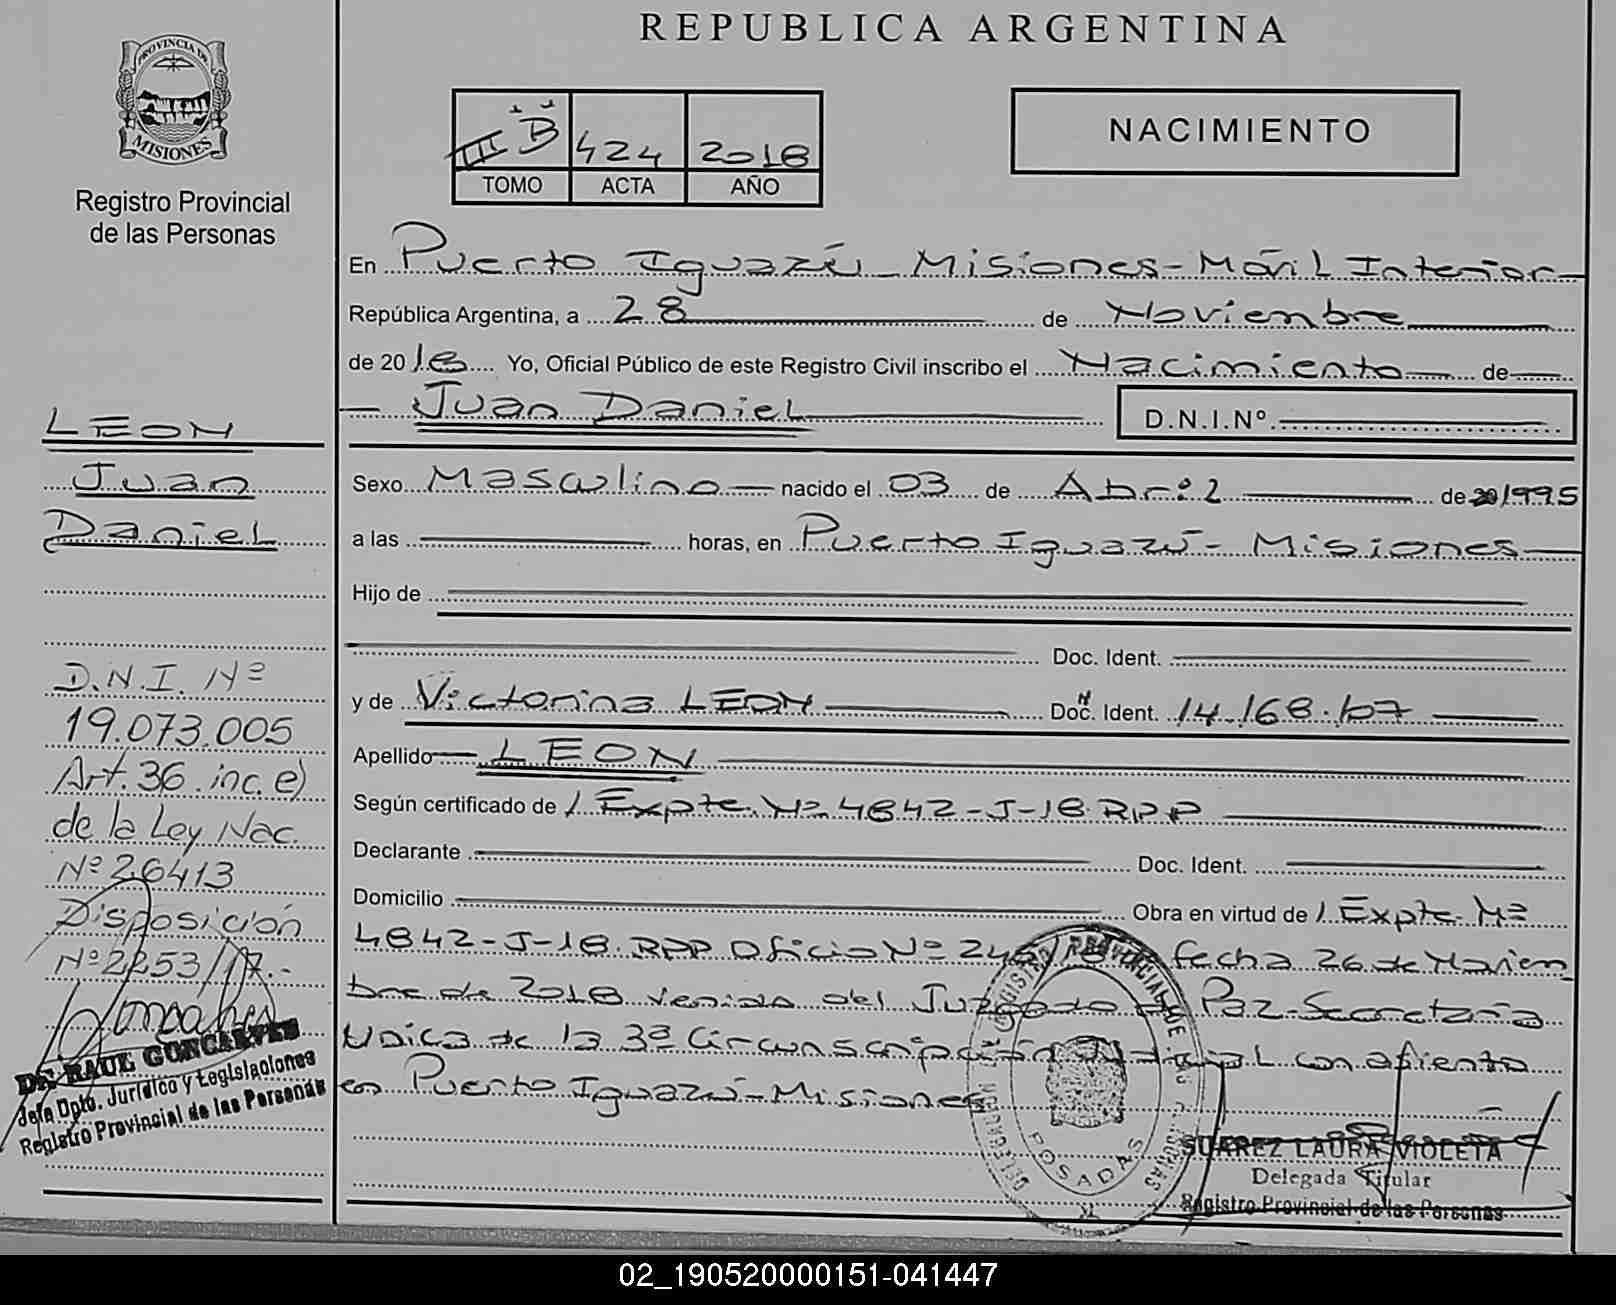 REPUBLICA ARGENTINA
PROVINCIA DE
MISIONES
Registro Provincial
de las Personas
III B 424 2018
TOMO ACTA AÑO
NACIMIENTO
En Puerto Iguazú - Misiones - Móvil Interior
República Argentina, a 28 de Noviembre
de 2018 Yo, Oficial Público de este Registro Civil inscribo el Nacimiento de
Juan Daniel D.N.I.Nº
Sexo Masculino nacido el 03 de Abril de 1995
a las horas, en Puerto Iguazú - Misiones
Hijo de
Doc. Ident.
y de Victorina LEON Doc. Ident. 14.168.107
Apellido LEON
Según certificado de / Expte. Nº 4842-J-18 RPP
Declarante Doc. Ident.
Domicilio Obra en virtud de / Expte. Nº
4842-J-18. RPP Oficio Nº fecha 26 de Noviem
bre de 2018 venido del Juzgado de Paz - Secretaría
Unica de la 3ª Circunscripción Judicial con asiento
en Puerto Iguazú - Misiones
POSADAS
SUAREZ LAURA VIOLETA
Delegada Titular
Registro Provincial de las Personas
LEON
Juan
Daniel
D.N.I. Nº
19.073.005
Art. 36 inc. e)
de la Ley Nac.
Nº 26413
Disposición
Nº 2253/17.-
Dr. RAUL GONCALVES
Jefe Dpto. Jurídico y Legislaciones
Registro Provincial de las Personas
02_190520000151-041447